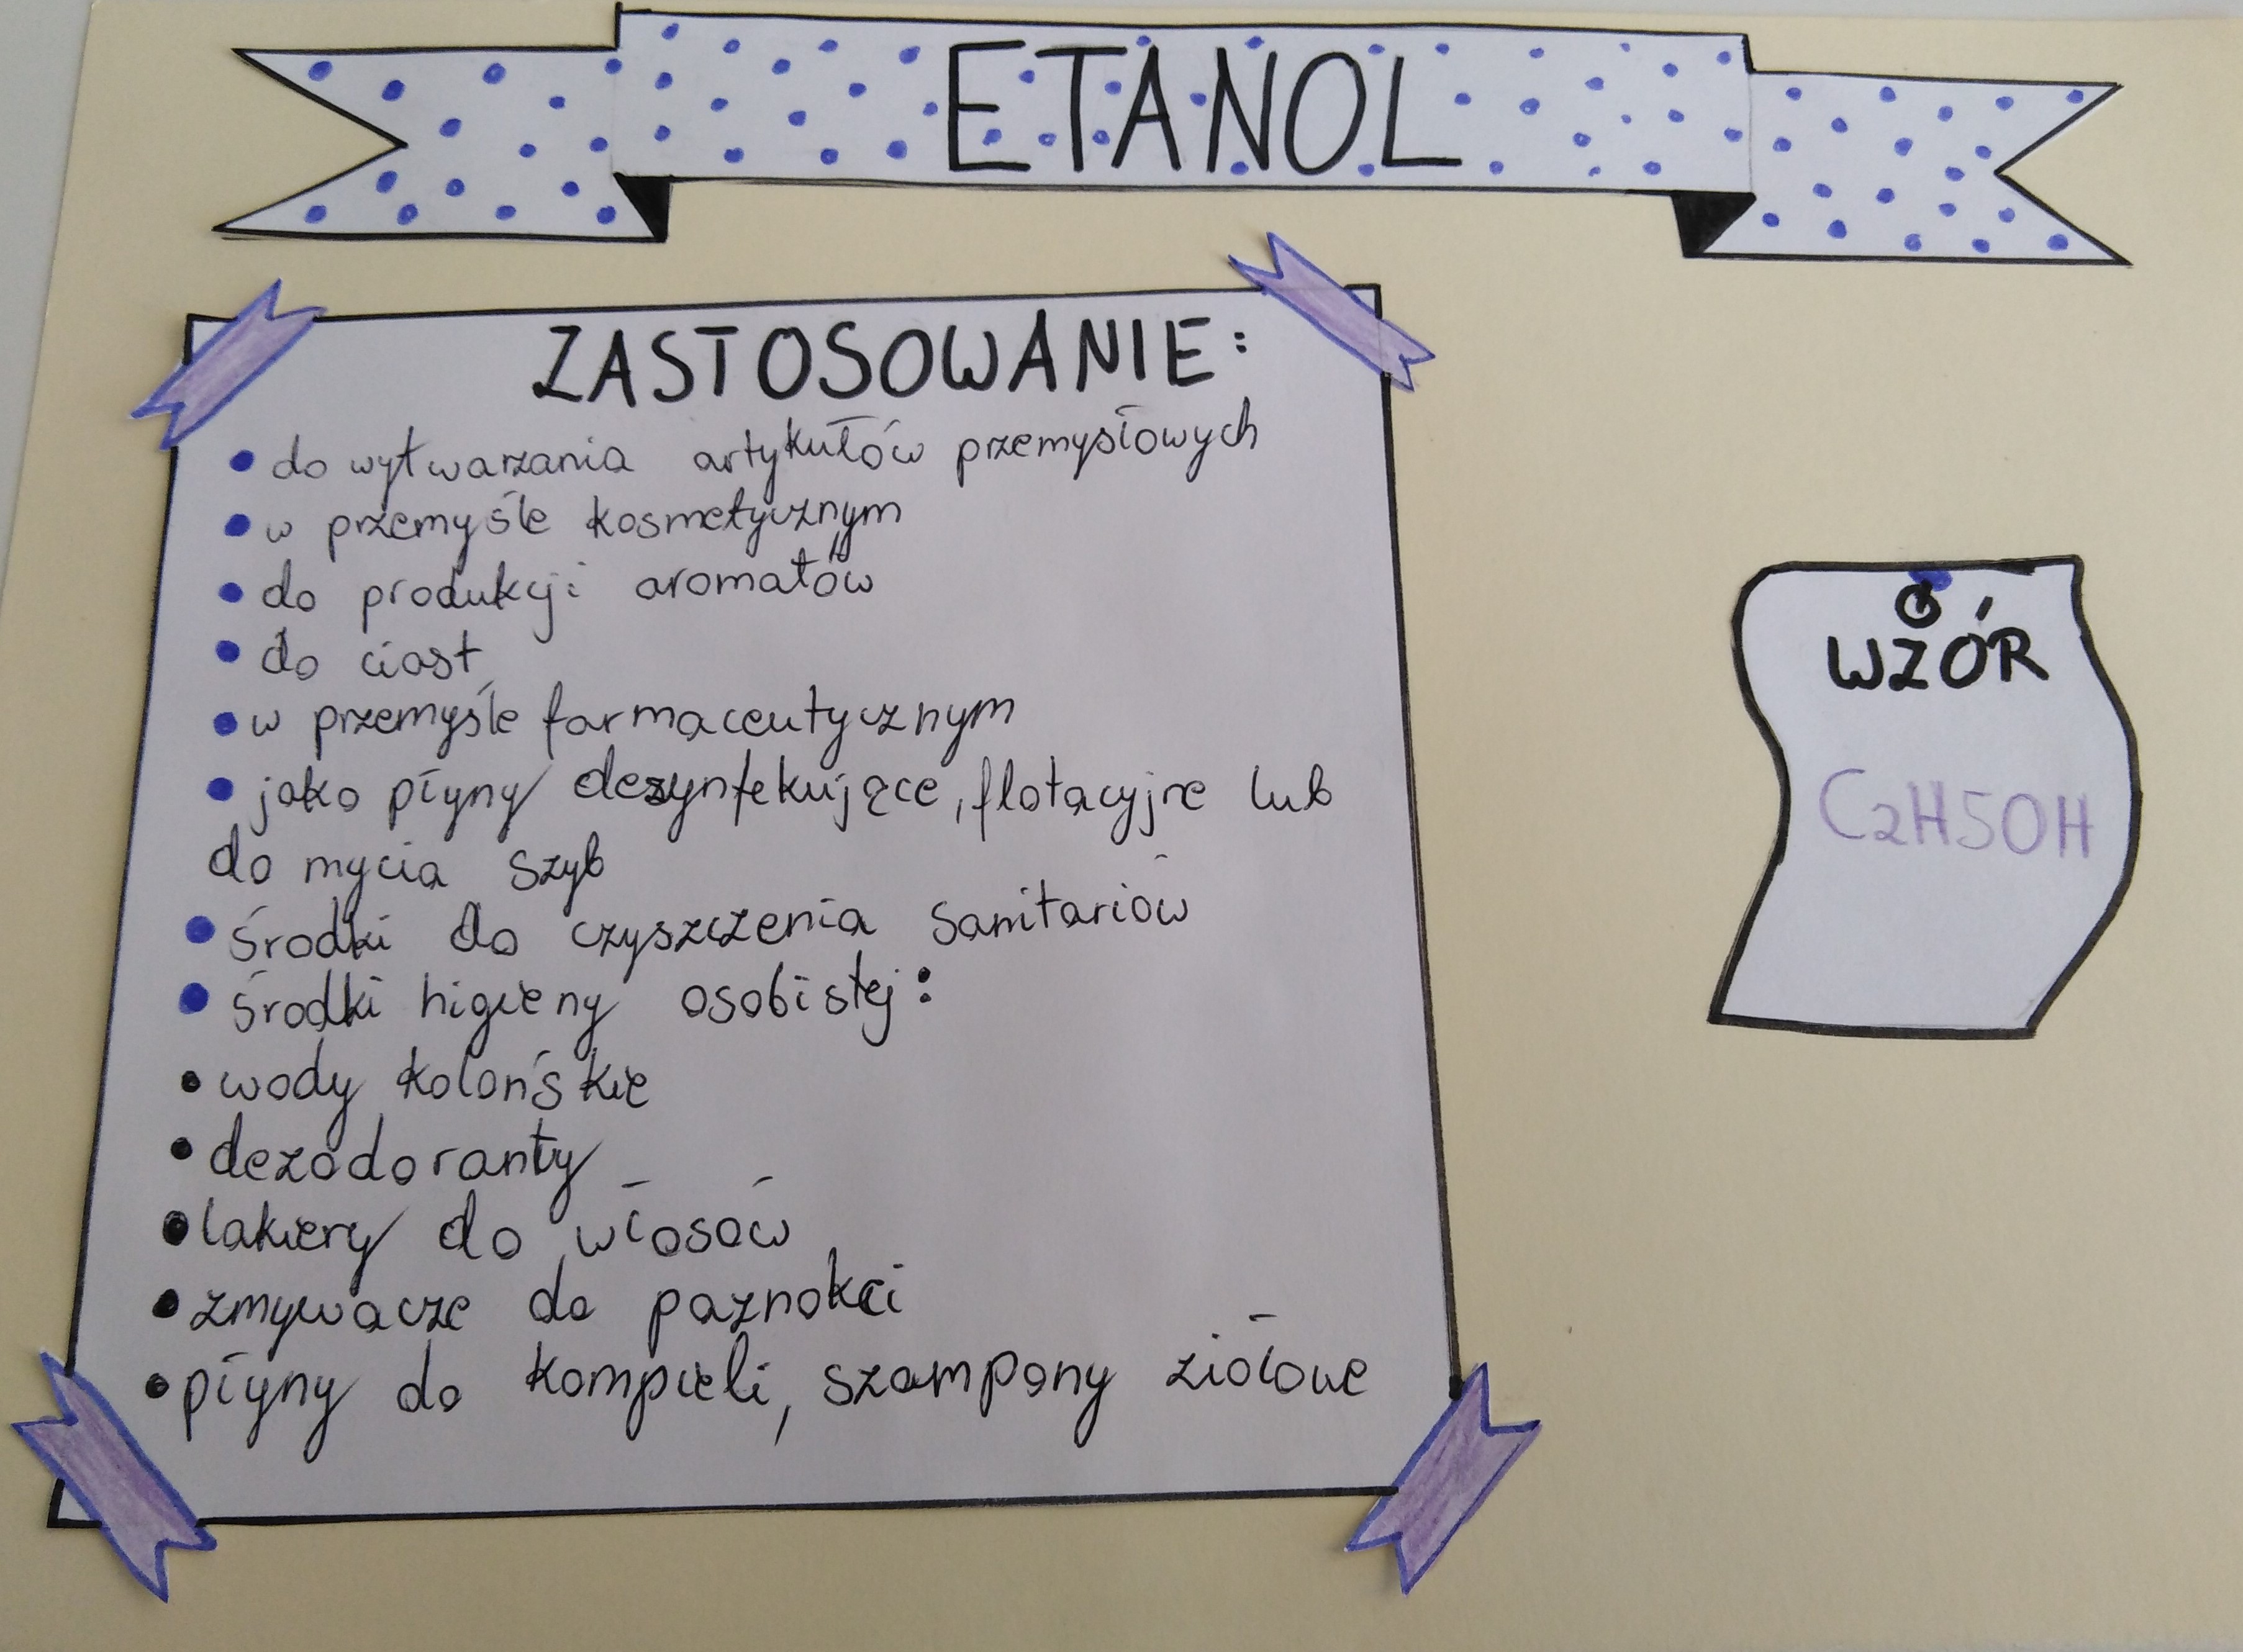 ETANOL
ZASTOSOWANIE:
• do wytwarzania artykułów przemysłowych
• w przemyśle kosmetycznym
• do produkcji aromatów
• do ciast
• w przemyśle farmaceutycznym
• jako płyny dezynfekujące, flotacyjne lub
do mycia szyb
• środki do czyszczenia sanitariów
• środki higieny osobistej:
• wody kolońskie
• dezodoranty
• lakiery do włosów
• zmywacze do paznokci
• płyny do kompieli, szampony ziołowe
WZÓR
C2H5OH